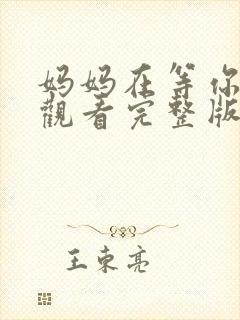 妈妈在等你
觀看完整版
王東亮